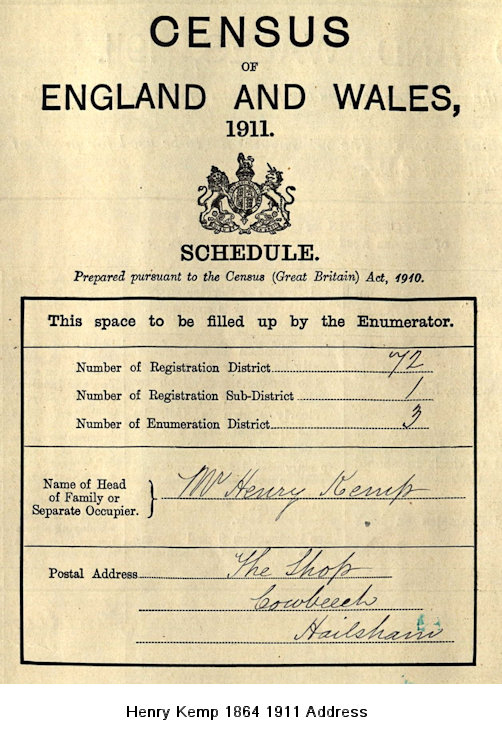 CENSUS
OF
ENGLAND AND WALES,
1911.
SCHEDULE.
Prepared pursuant to the Census (Great Britain) Act, 1910.
This space to be filled up by the Enumerator.
Number of Registration District 72
Number of Registration Sub-District 1
Number of Enumeration District 3
Name of Head
of Family or
Separate Occupier. } Mr Henry Kemp
Postal Address The Shop
Cowbeech
Hailsham
Henry Kemp 1864 1911 Address